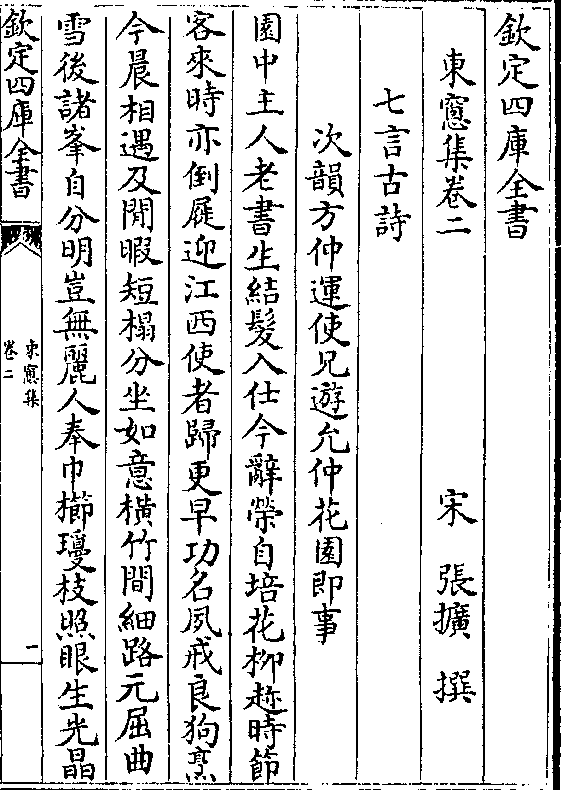 欽定四庫全書
東窻集卷二
宋　張擴　撰
七言古詩
次韻方仲運使兄遊允仲花園即事
園中主人老書生結髮入仕今辭榮自培花栁趂時節
客來時亦倒屣迎江西使者歸更早功名夙戒良狗烹
今晨相遇及閒暇短榻分坐如意橫竹間細路元屈曲
雪後諸峯自分明豈無麗人奉巾櫛瓊枝照眼生光晶
欽定四庫全書
東窻集
卷二
一